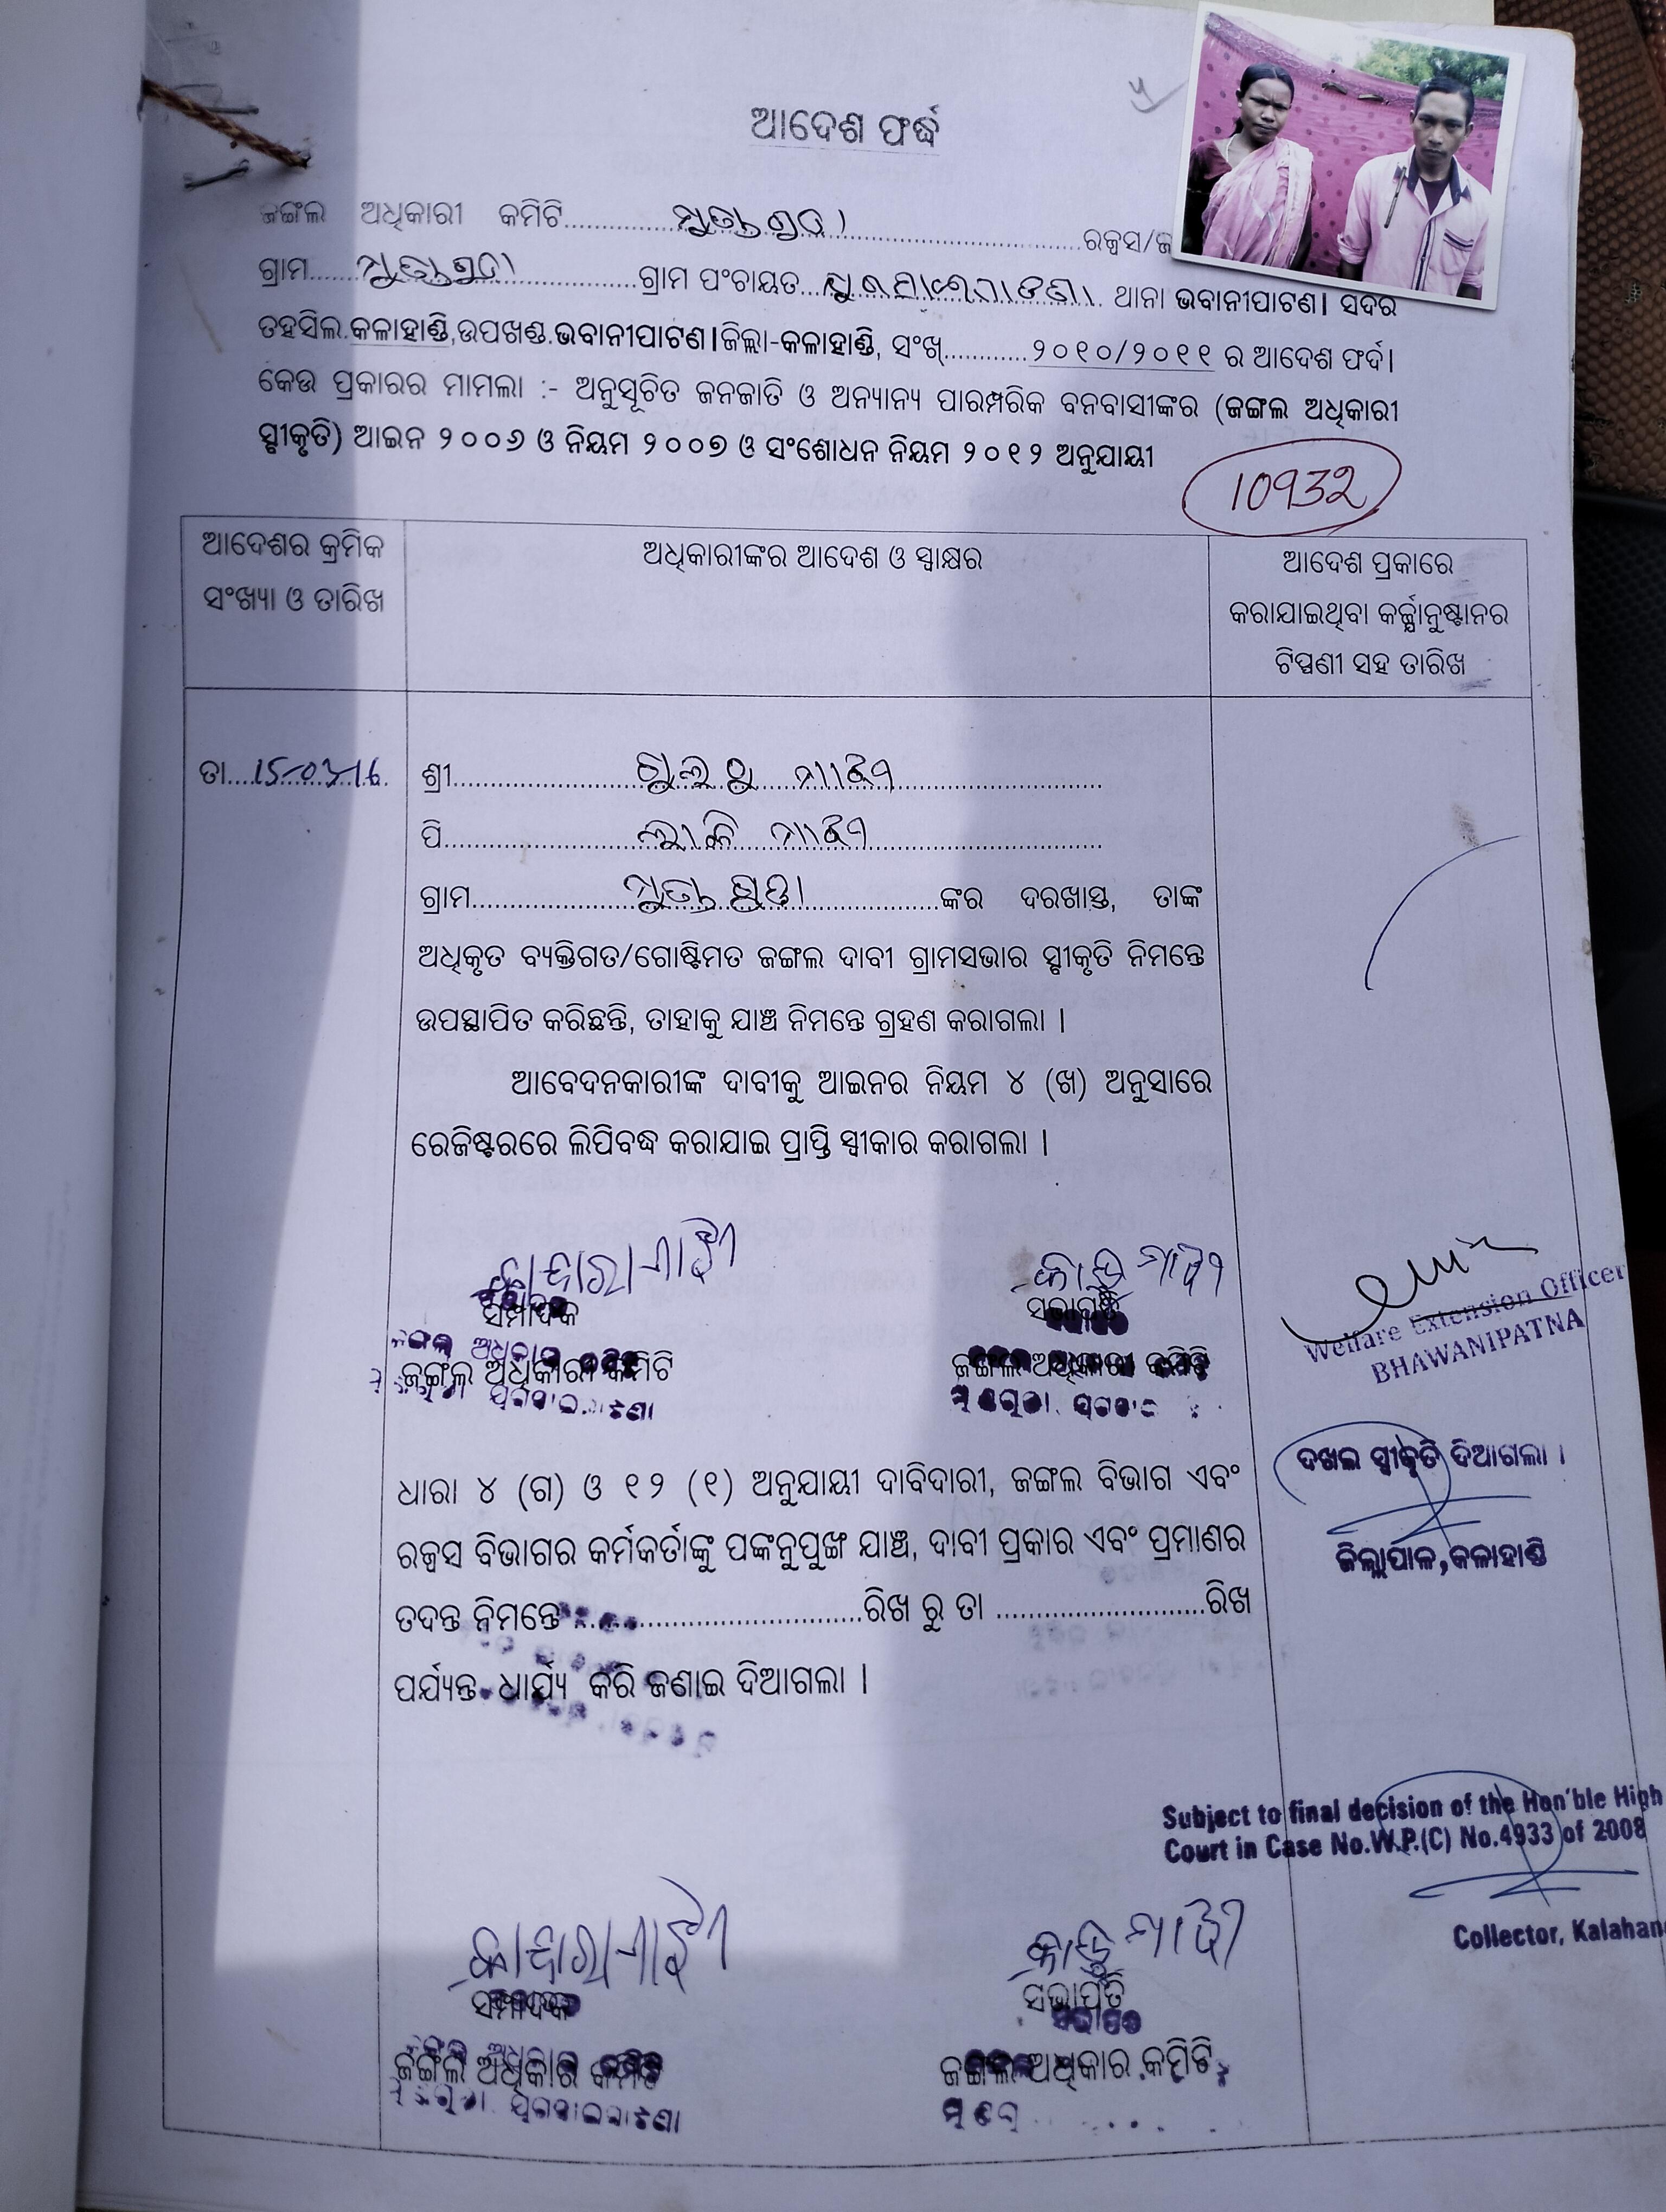 ଆଦେଶ ଫର୍ଦ୍ଧ
ଜଙ୍ଗଲ ଅଧିକାରୀ କମିଟି.......... ରଜ୍ୱସ/ଜ
ଗ୍ରାମ.......... ଗ୍ରାମ ପଂଚାୟତ.......... ଥାନା ଭବାନୀପାଟଣା ସଦର
ତହସିଲ.କଳାହାଣ୍ଡି,ଉପଖଣ୍ଡ.ଭବାନୀପାଟଣା ଜିଲ୍ଲା-କଳାହାଣ୍ଡି, ସଂଖ୍............୨୦୧୦/୨୦୧୧ ର ଆଦେଶ ଫର୍ଦ୍ଦ।
କେଉ ପ୍ରକାରର ମାମଲା :- ଅନୁସୂଚିତ ଜନଜାତି ଓ ଅନ୍ୟାନ୍ୟ ପାରମ୍ପରିକ ବନବାସୀଙ୍କର (ଜଙ୍ଗଲ ଅଧିକାରୀ
ସ୍ୱୀକୃତି) ଆଇନ ୨୦୦୬ ଓ ନିୟମ ୨୦୦୭ ଓ ସଂଶୋଧନ ନିୟମ ୨୦୧୨ ଅନୁଯାୟୀ
10932
ଆଦେଶର କ୍ରମିକ
ସଂଖ୍ୟା ଓ ତାରିଖ
ଅଧିକାରୀଙ୍କର ଆଦେଶ ଓ ସ୍ୱାକ୍ଷର
ଆଦେଶ ପ୍ରକାରେ
କରାଯାଇଥିବା କର୍ଯ୍ଯାନୁଷ୍ଟାନର
ଟିପ୍ପଣୀ ସହ ତାରିଖ
ତା....
ଶ୍ରୀ.......... ମାଝୀ
ପି.......... ମାଝୀ
ଗ୍ରାମ..........ଙ୍କର ଦରଖାସ୍ତ, ତାଙ୍କ
ଅଧିକୃତ ବ୍ୟକ୍ତିଗତ/ଗୋଷ୍ଟିମତ ଜଙ୍ଗଲ ଦାବୀ ଗ୍ରାମସଭାର ସ୍ୱୀକୃତି ନିମନ୍ତେ
ଉପସ୍ଥାପିତ କରିଛନ୍ତି, ତାହାକୁ ଯାଞ୍ଚ ନିମନ୍ତେ ଗ୍ରହଣ କରାଗଲା ।
ଆବେଦନକାରୀଙ୍କ ଦାବୀକୁ ଆଇନର ନିୟମ ୪ (ଖ) ଅନୁସାରେ
ରେଜିଷ୍ଟରରେ ଲିପିବଦ୍ଧ କରାଯାଇ ପ୍ରାପ୍ତି ସ୍ୱୀକାର କରାଗଲା ।
ମାଝୀ
ମାଝୀ
ସମ୍ପାଦକ
ସଭାପତି
ଜଙ୍ଗଲ ଅଧିକାରୀ କମିଟି
ଜଙ୍ଗଲ ଅଧିକାରୀ କମିଟି
Welfare Extension Officer
BHAWANIPATNA
ଦଖଲ ସ୍ୱୀକୃତି ଦିଆଗଲା ।
ଜିଲ୍ଲାପାଳ,କଳାହାଣ୍ଡି
ଧାରା ୪ (ଗ) ଓ ୧୨ (୧) ଅନୁଯାୟୀ ଦାବିଦାରୀ, ଜଙ୍ଗଲ ବିଭାଗ ଏବଂ
ରଜ୍ୱସ ବିଭାଗର କର୍ମକର୍ତାଙ୍କୁ ପଙ୍କନୁପୁଙ୍ଖ ଯାଞ୍ଚ, ଦାବୀ ପ୍ରକାର ଏବଂ ପ୍ରମାଣର
ତଦନ୍ତ ନିମନ୍ତେ ..........ରିଖ ରୁ ତା ..........ରିଖ
ପର୍ଯ୍ୟନ୍ତ ଧାର୍ଯ୍ୟ କରି ଜଣାଇ ଦିଆଗଲା ।
Subject to final decision of the Hon'ble High
Court in Case No.W.P.(C) No.4933 of 2008
Collector, Kalahan
ମାଝୀ
ମାଝୀ
ସମ୍ପାଦକ
ସଭାପତି
ଜଙ୍ଗଲ ଅଧିକାର କମିଟି
ଜଙ୍ଗଲ ଅଧିକାର କମିଟି